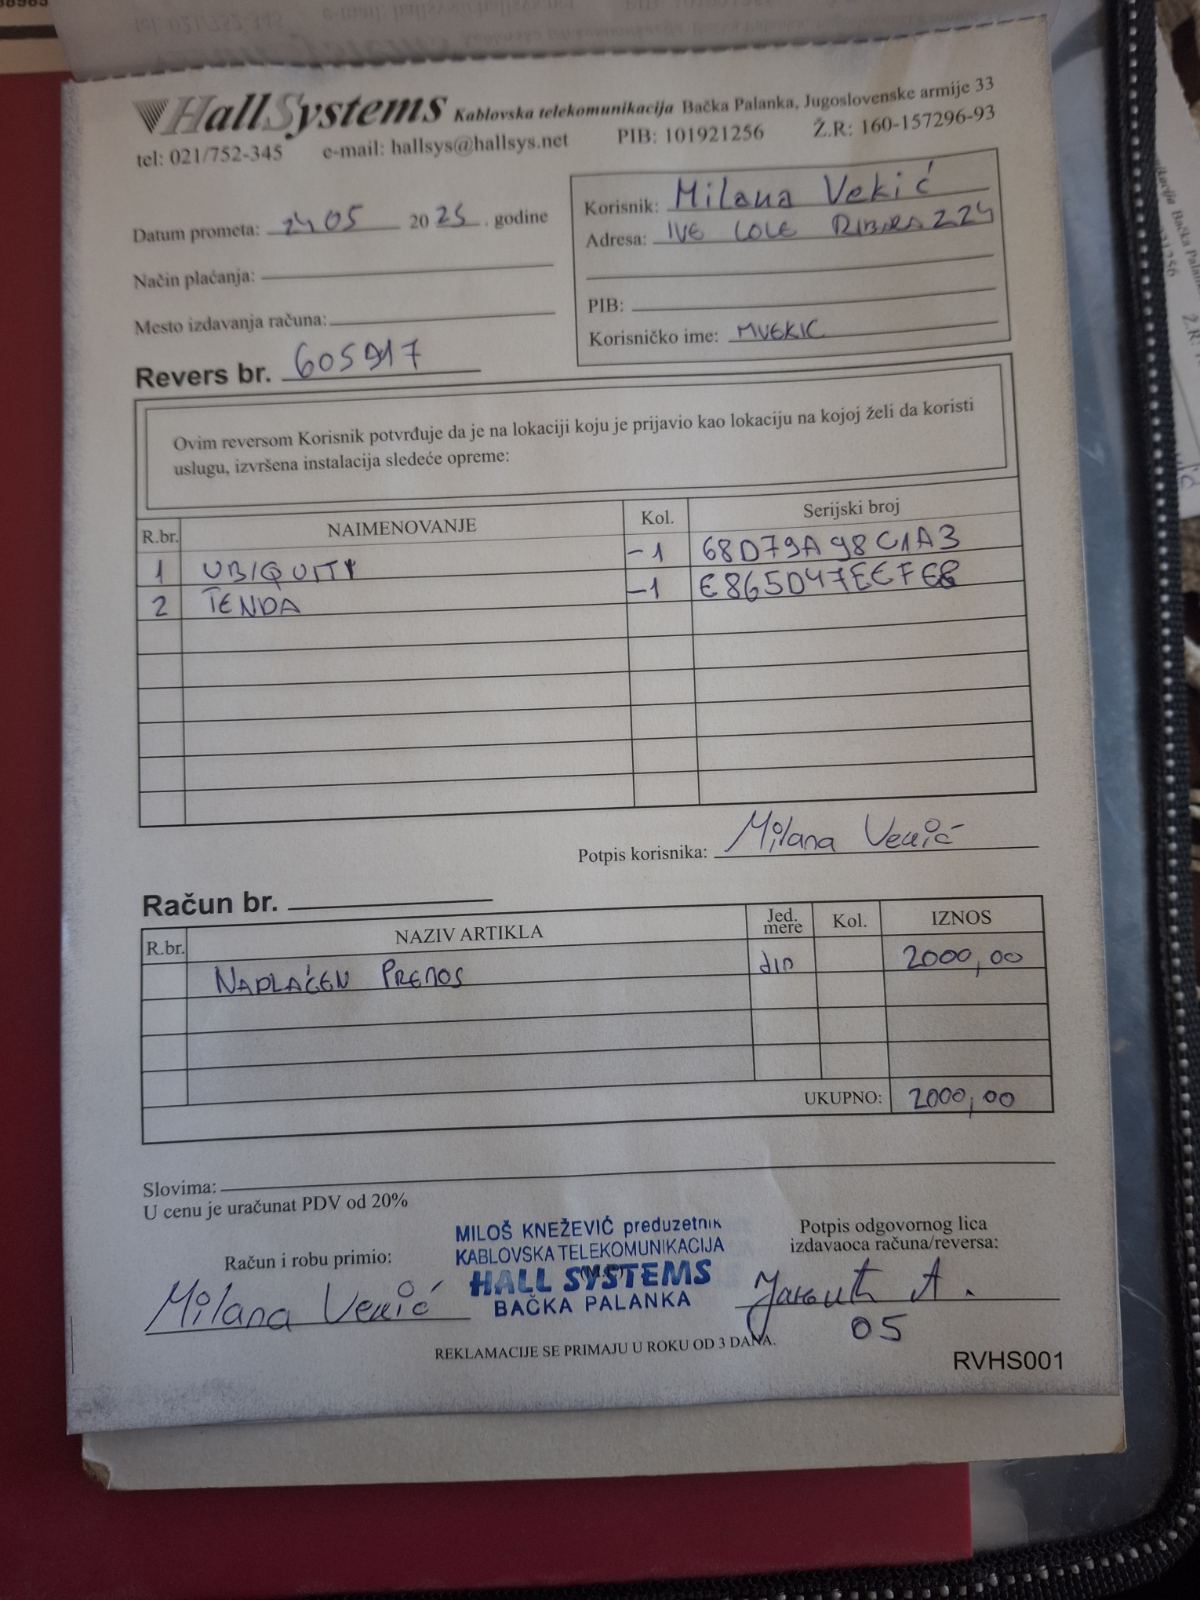 HallSystems Kablovska telekomunikacija Bačka Palanka, Jugoslovenske armije 33
tel: 021/752-345 e-mail: hallsys@hallsys.net PIB: 101921256 Ž.R: 160-157296-93
Datum prometa: 24 05 2025. godine
Način plaćanja:
Mesto izdavanja računa:
Revers br. 605917
Korisnik: Milana Vekić
Adresa: IVE LOLE RIBARA 224
PIB:
Korisničko ime: MVEKIC
Ovim reversom Korisnik potvrđuje da je na lokaciji koju je prijavio kao lokaciju na kojoj želi da koristi
uslugu, izvršena instalacija sledeće opreme:
R.br. NAIMENOVANJE Kol. Serijski broj
1 UBIQUITY -1 68D79A98C1A3
2 TENDA -1 E865D47EEFE8
Potpis korisnika: Milana Vekić
Račun br.
R.br. NAZIV ARTIKLA Jed. mere Kol. IZNOS
NAPLAĆEN PRENOS din 2000,00
UKUPNO: 2000,00
Slovima:
U cenu je uračunat PDV od 20%
Račun i robu primio:
Milana Vekić
MILOŠ KNEŽEVIĆ preduzetnik
KABLOVSKA TELEKOMUNIKACIJA
HALL SYSTEMS
BAČKA PALANKA
Potpis odgovornog lica
izdavaoca računa/reversa:
A.
05
REKLAMACIJE SE PRIMAJU U ROKU OD 3 DANA.
RVHS001